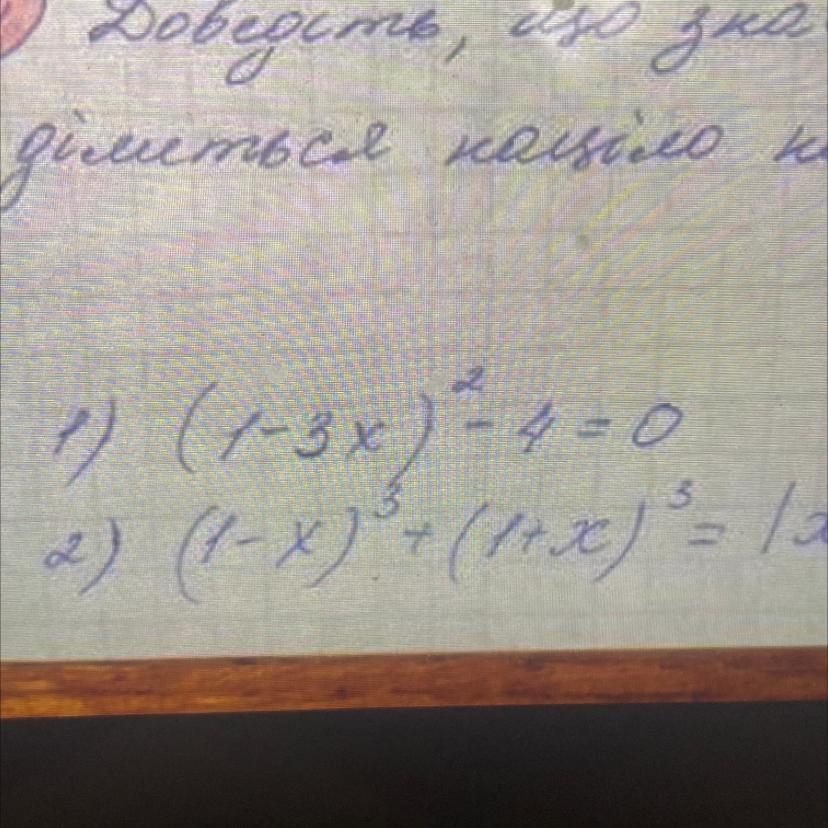 Доведіть, що зна
ділиться націло н
1) (1-3x)² - 4 = 0
2) (1-x)³ + (1+x)³ = |x